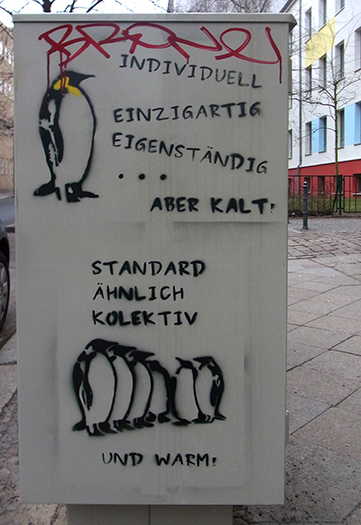 INDIVIDUELL
EINZIGARTIG
EIGENSTÄNDIG
...
ABER KALT!
STANDARD
ÄHNLICH
KOLEKTIV
UND WARM!